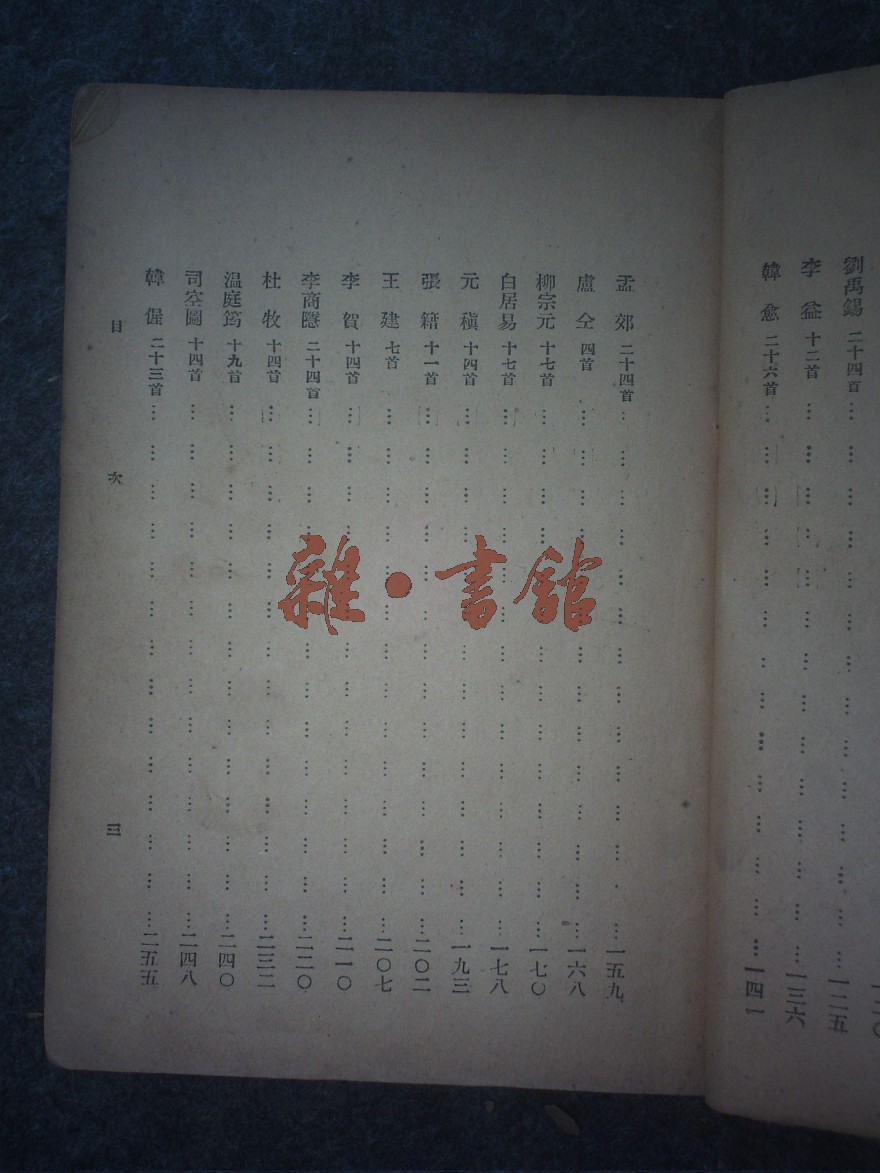 劉禹錫 二十四首 … 一二五
李益 十二首 … 一三六
韓愈 二十六首 … 一四一
孟郊 二十四首 … 一五九
盧仝 四首 … 一六八
柳宗元 十七首 … 一七〇
白居易 十七首 … 一七八
元稹 十四首 … 一九三
張籍 十一首 … 二〇二
王建 七首 … 二〇七
李賀 十四首 … 二一〇
李商隱 二十四首 … 二二〇
杜牧 十四首 … 二三二
温庭筠 十九首 … 二四〇
司空圖 十四首 … 二四八
韓偓 二十三首 … 二五五
目次 三
雜·書館